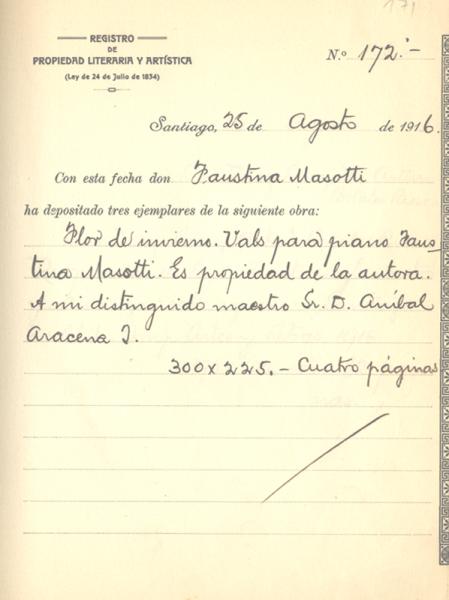 171
REGISTRO
DE
PROPIEDAD LITERARIA Y ARTÍSTICA
(Ley de 24 de Julio de 1834)
N.º 172.-
Santiago, 25 de Agosto de 1916.
Con esta fecha don Faustina Masotti
ha depositado tres ejemplares de la siguiente obra:
Flor de invierno. Vals para piano Faus-
tina Masotti. Es propiedad de la autora.
A mi distinguido maestro Sr. D. Aníbal
Aracena I.
300 x 225.- Cuatro páginas